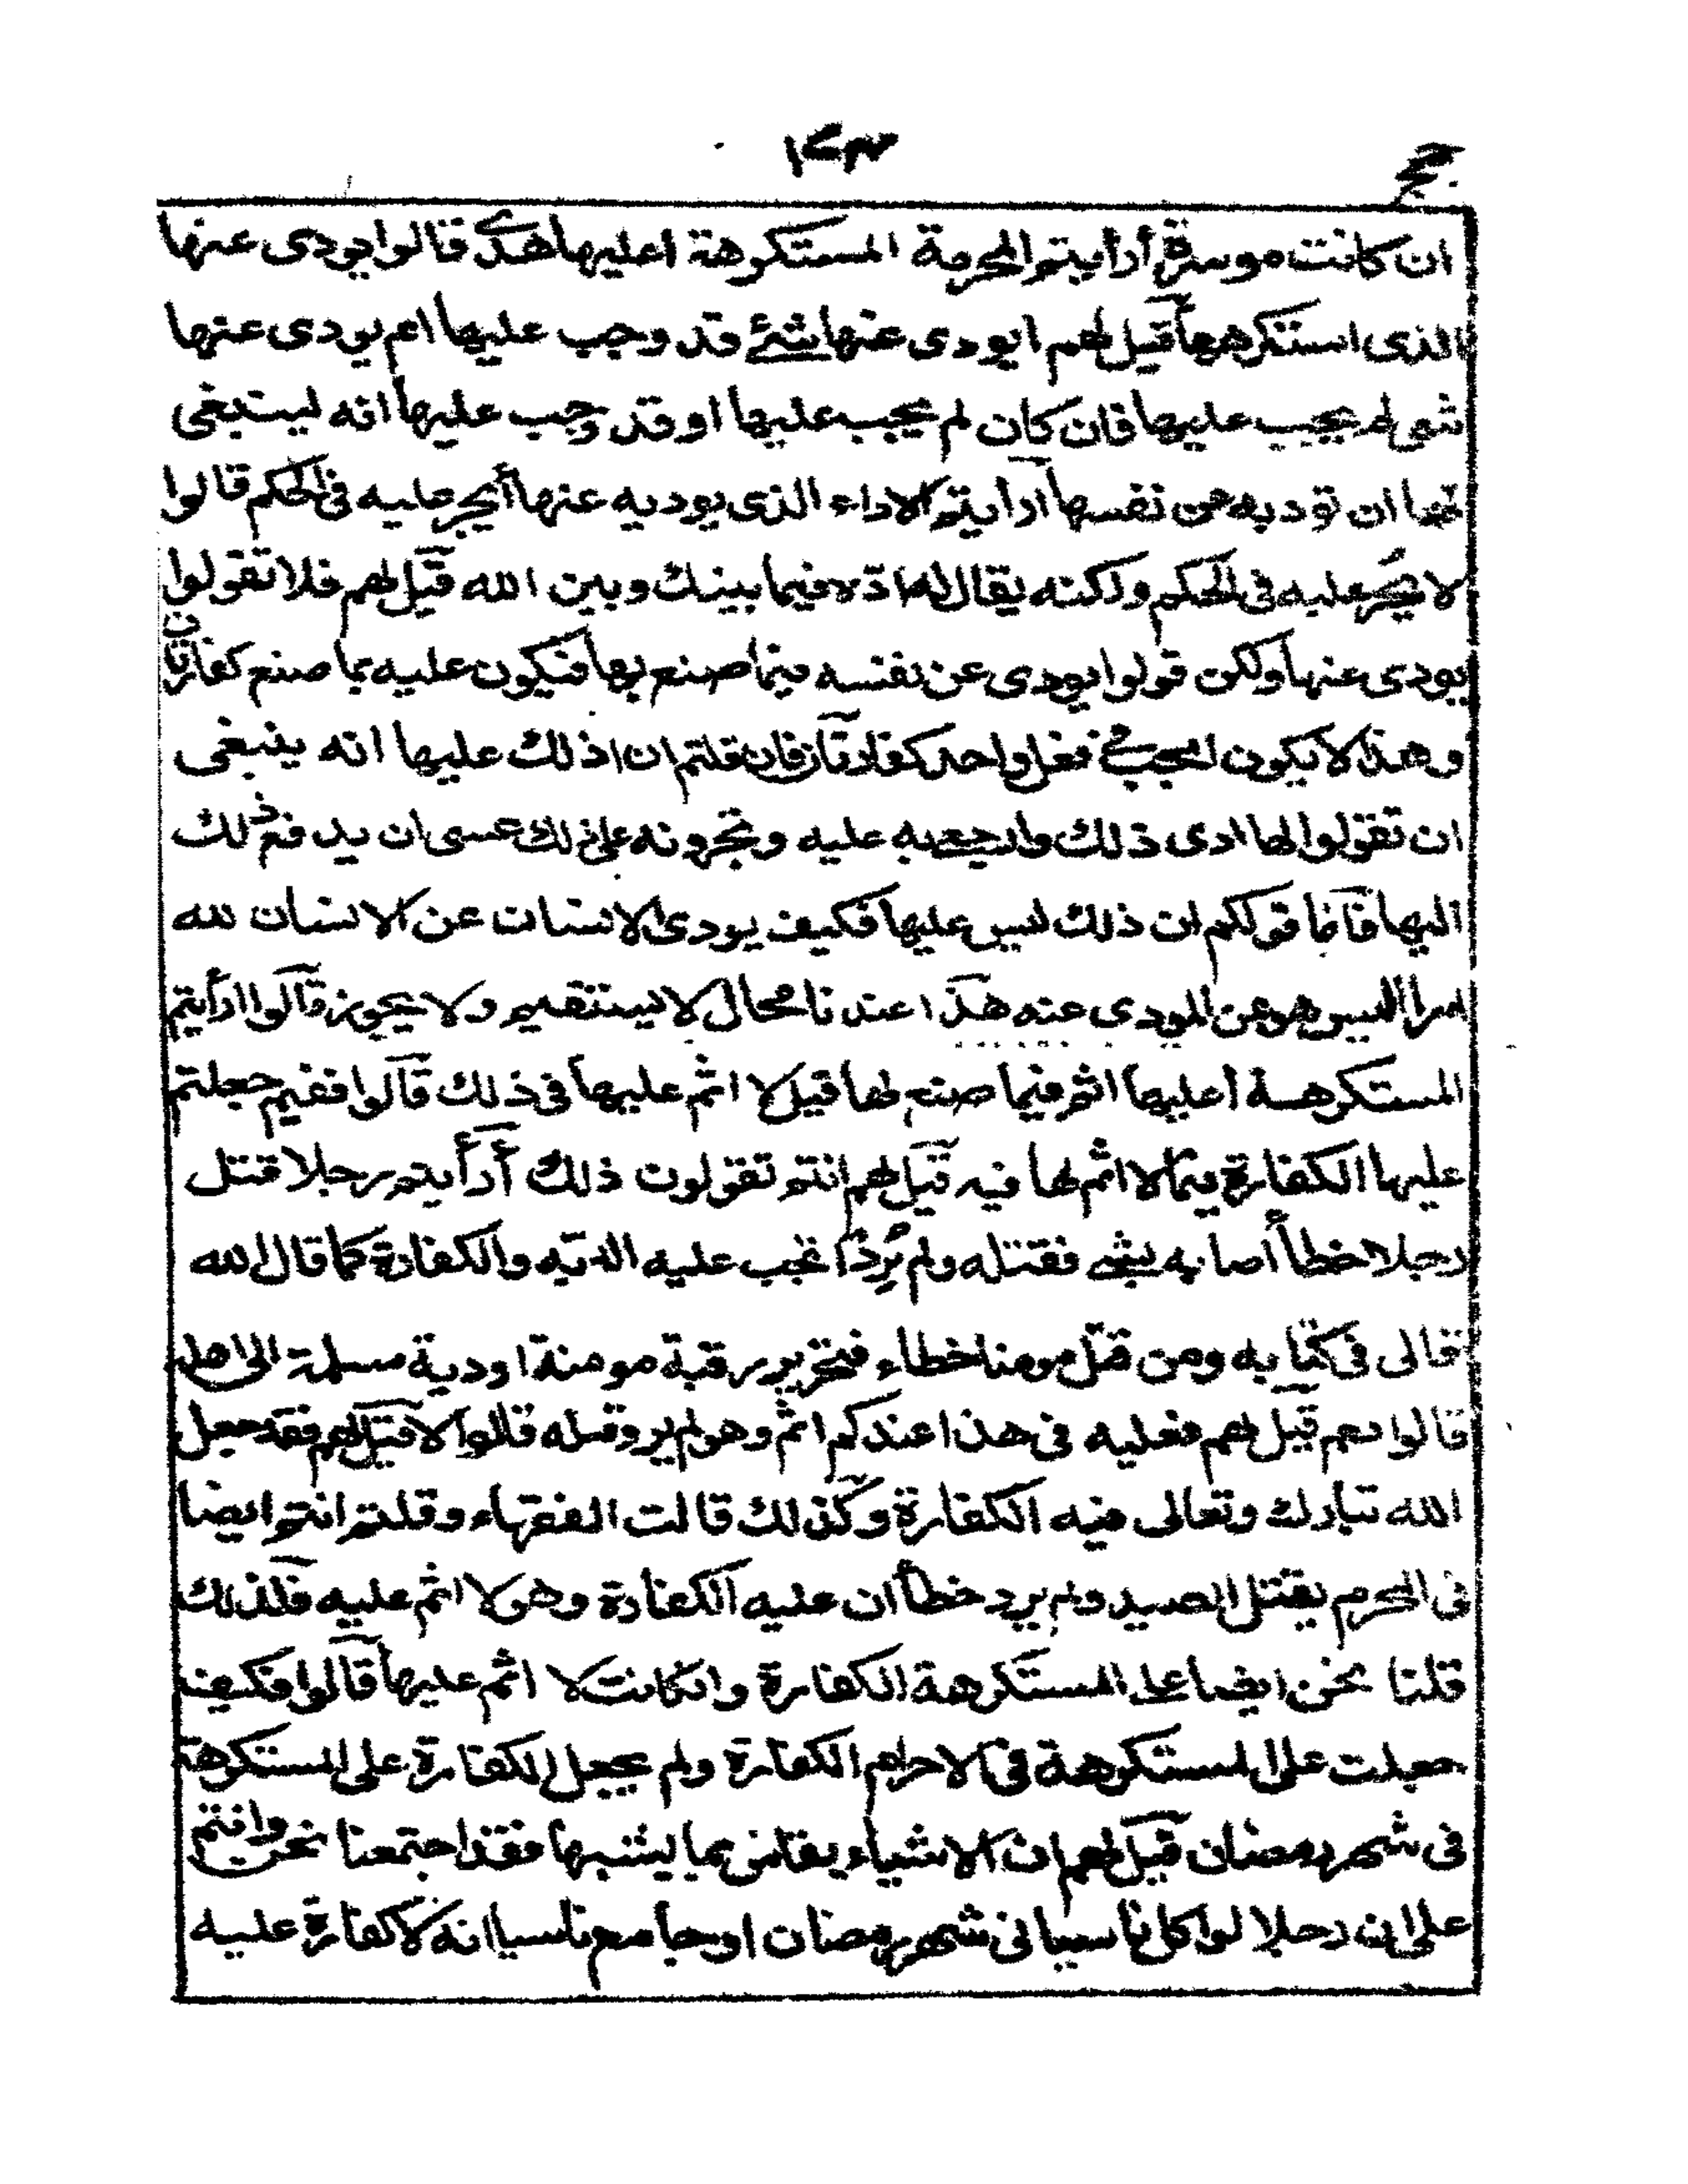 حج
١٤٣
ان كانت موسرة أرأيتم المحرمة المستكرهة اعليها هدى قالوا يودى عنها
الذى استكرهها قيل لهم ايودى عنها شئ قد وجب عليها ام يودى عنها
شئ لم يجب عليها فان كان لم يجب عليها او قد وجب عليها انه ليتبغى
لها ان توديه عن نفسها أرأيتم الاداء الذى يوديه عنها أيجبر عليه فى الحكم قالوا
لا يجبر عليه فى الحكم ولكنه يقال له اده فيما بينك وبين الله قيل لهم فلا تقولوا
يودى عنها ولكن قولوا يودى عن نفسه فيما صنع بها فيكون عليه بما صنع كفارتان
وهذا لا يكون ان يجب فى فعل واحد كفارتان فان قلتم ان ذلك عليها انه ينبغى
ان تقولوا لها ادى ذلك وارجعى به عليه وتجبرونه على ذلك عسى ان يدفع ذلك
اليها فاما قولكم ان ذلك ليس عليها فكيف يودى الانسان عن الانسان لله
امرا ليس هو عن المودى عنه هذا عندنا محال لا يستقيم ولا يجوز قالوا ارأيتم
المستكرهة أعليها اثم فيما صنع لها قيل لا اثم عليها فى ذلك قالوا ففيم جعلتم
عليها الكفارة فيما لا اثم لها فيه قيل لهم انتم تقولون ذلك أرأيتم رجلا قتل
رجلا خطأ أصابه بشئ فقتله ولم يُرِد أتجب عليه الدية والكفارة كما قال الله
تعالى فى كتابه ومن قتل مومنا خطاء فتحرير رقبة مومنة اودية مسلمة الى اهله
قالوا نعم قيل لهم فعليه فى هذا عندكم اثم وهو لم يرد قتله قالوا لا قيل لهم فقد جعل
الله تبارك وتعالى فيه الكفارة وكذلك قالت الفقهاء وقلتم انتم ايضا
فى المحرم يقتل الصيد ولم يرد خطأ ان عليه الكفارة وهو لا اثم عليه فلذلك
قلنا نحن ايضا على المستكرهة الكفارة وان كانت لا اثم عليها قالوا فكيف
جعلت على المستكرهة فى الاحرام الكفارة ولم يجعل الكفارة على المستكرهة
فى شهر رمضان قيل لهم ان الاشياء يقاس بما يشبهها فقد اجتمعنا نحن وانتم
على ان رجلا لو اكل ناسيا فى شهر رمضان او جامع ناسيا انه لا كفارة عليه